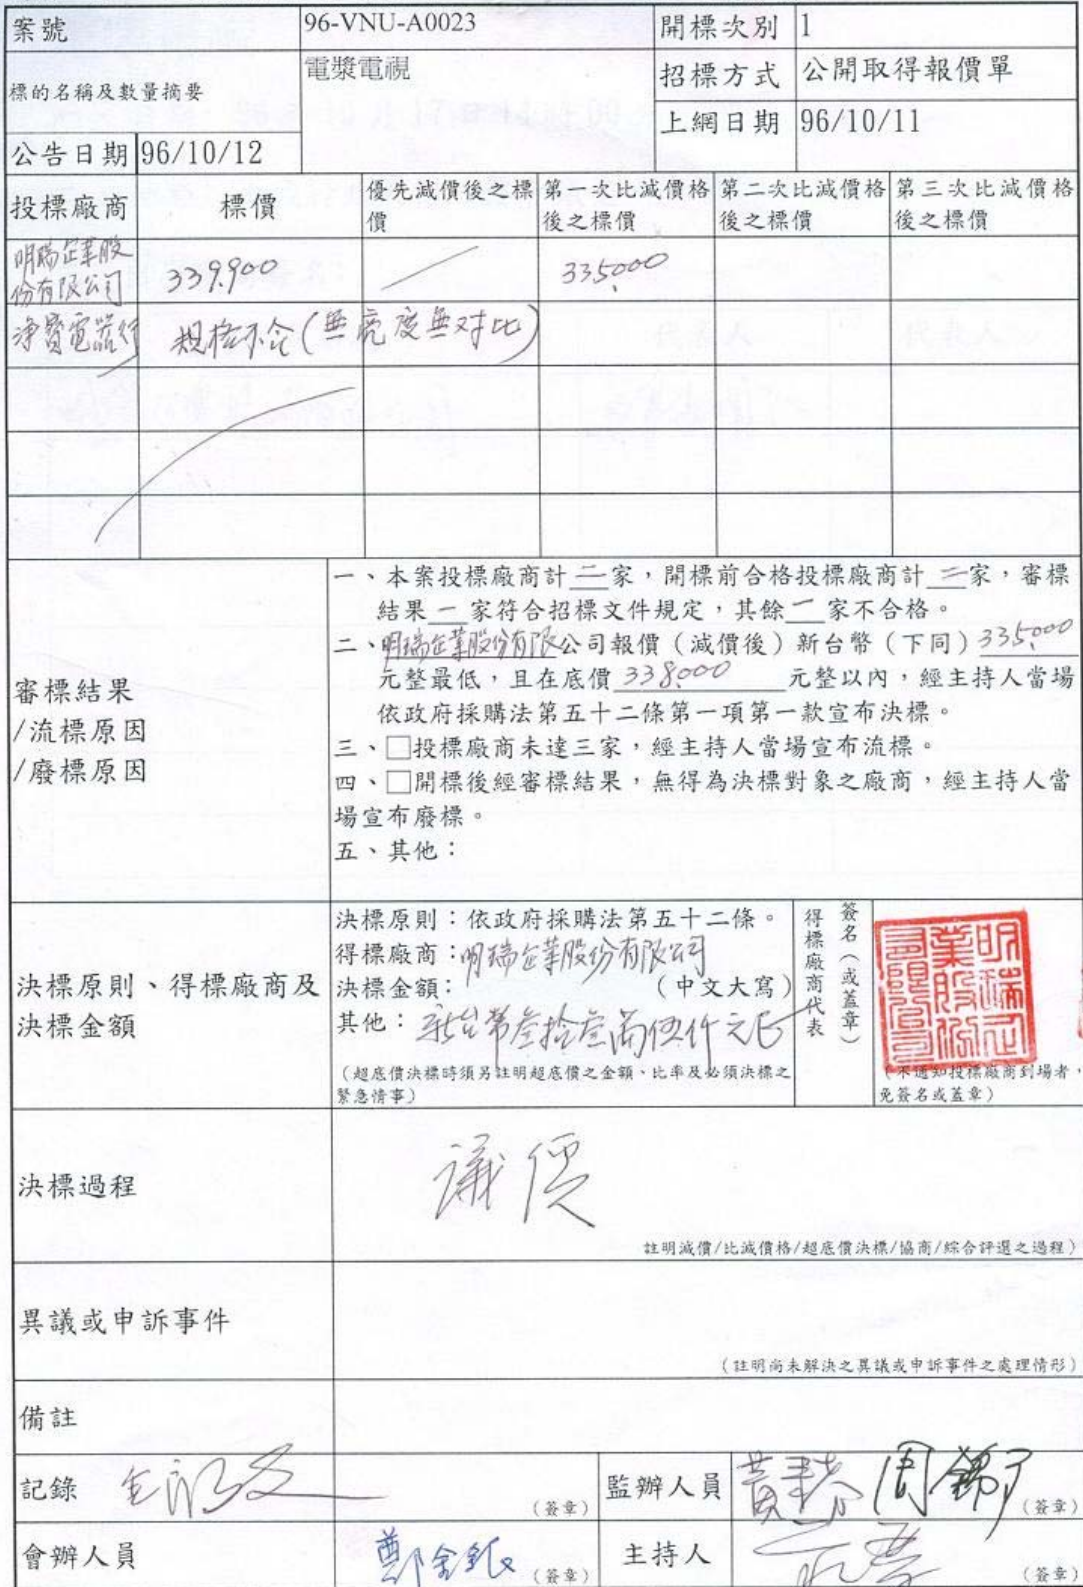 案號 96-VNU-A0023 開標次別 1
標的名稱及數量摘要 電漿電視 招標方式 公開取得報價單
上網日期 96/10/11
公告日期 96/10/12
投標廠商 標價 優先減價後之標價 第一次比減價格後之標價 第二次比減價格後之標價 第三次比減價格後之標價
明瑞企業股份有限公司 339,900 335,000
電器行 規格不合(無亮度無對比)
審標結果
/流標原因
/廢標原因
一、本案投標廠商計二家,開標前合格投標廠商計二家,審標
結果一家符合招標文件規定,其餘一家不合格。
二、明瑞企業股份有限公司報價(減價後)新台幣(下同)335,000
元整最低,且在底價338,000元整以內,經主持人當場
依政府採購法第五十二條第一項第一款宣布決標。
三、□投標廠商未達三家,經主持人當場宣布流標。
四、□開標後經審標結果,無得為決標對象之廠商,經主持人當
場宣布廢標。
五、其他:
決標原則、得標廠商及
決標金額
決標原則:依政府採購法第五十二條。
得標廠商:明瑞企業股份有限公司
決標金額: (中文大寫)
其他:新台幣叁拾叁萬伍仟元正
(超底價決標時須另註明超底價之金額、比率及必須決標之
緊急情事)
得標廠商代表
簽名(或蓋章)
明瑞企業股份有限公司
(不通知投標廠商到場者,
免簽名或蓋章)
決標過程 議價
註明減價/比減價格/超底價決標/協商/綜合評選之過程)
異議或申訴事件
(註明尚未解決之異議或申訴事件之處理情形)
備註
記錄 (簽章) 監辦人員 (簽章)
會辦人員 (簽章) 主持人 (簽章)